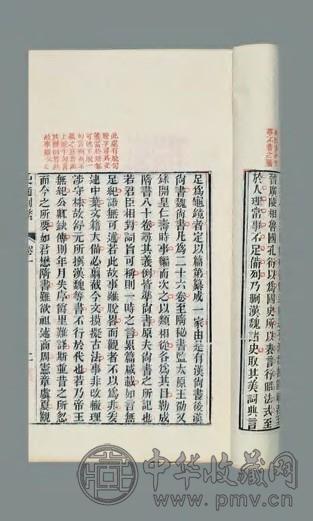 晉廣陵相魯國孔衍以爲國史所以表言行昭法式至
於人理常事不足備列乃刪漢魏諸史取其美詞典言
足爲龜鏡者定以篇第纂成一家由是有漢尚書後漢
尚書魏尚書凡爲二十六卷至隋祕書監太原王劭又
錄開皇仁壽時事編而次之以類相從各爲其目勒成
隋書八十卷尋其義例皆準尚書原夫尚書之所記也
若君臣相對詞旨可稱則一時之言累篇咸載如言無
足紀語無可述若此故事雖脫略而觀者不以爲非爰
逮中葉文籍大備必翦截今文模擬古法事非改轍理
涉守株故舒元所撰漢魏等書不行於代也若乃帝王
無紀公卿缺傳則年月失序爵里難詳斯並昔之所忽
而今之所要如君懋隋書雖欲祖述商周憲章虞夏觀
史通削繁 卷一 二
中华收藏网
www.pmv.cn